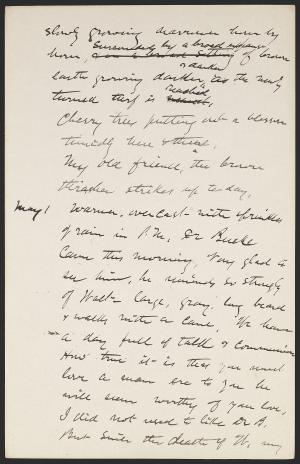 slowly growing                hour by
hour, surrounded by a broad expanse of brown
earth growing darker & darker, as the newly
turned turf is reached.
Cherry trees putting out a blossom
timidly here & there.
My old friend, the brown
thrasher strikes up to-day.
May 1 Warmer, overcast with sprinkles
of rain in P.M. Dr Bucke
came this morning. Very glad to
see him, he reminds so strongly
of Walt - large, gray, long beard
& walks with a cane. We have
a day full of talk & communion
How true it is that you must
love a man ere to you he
will seem worthy of your love.
I did not used to like Dr B.
But since the death of W. my